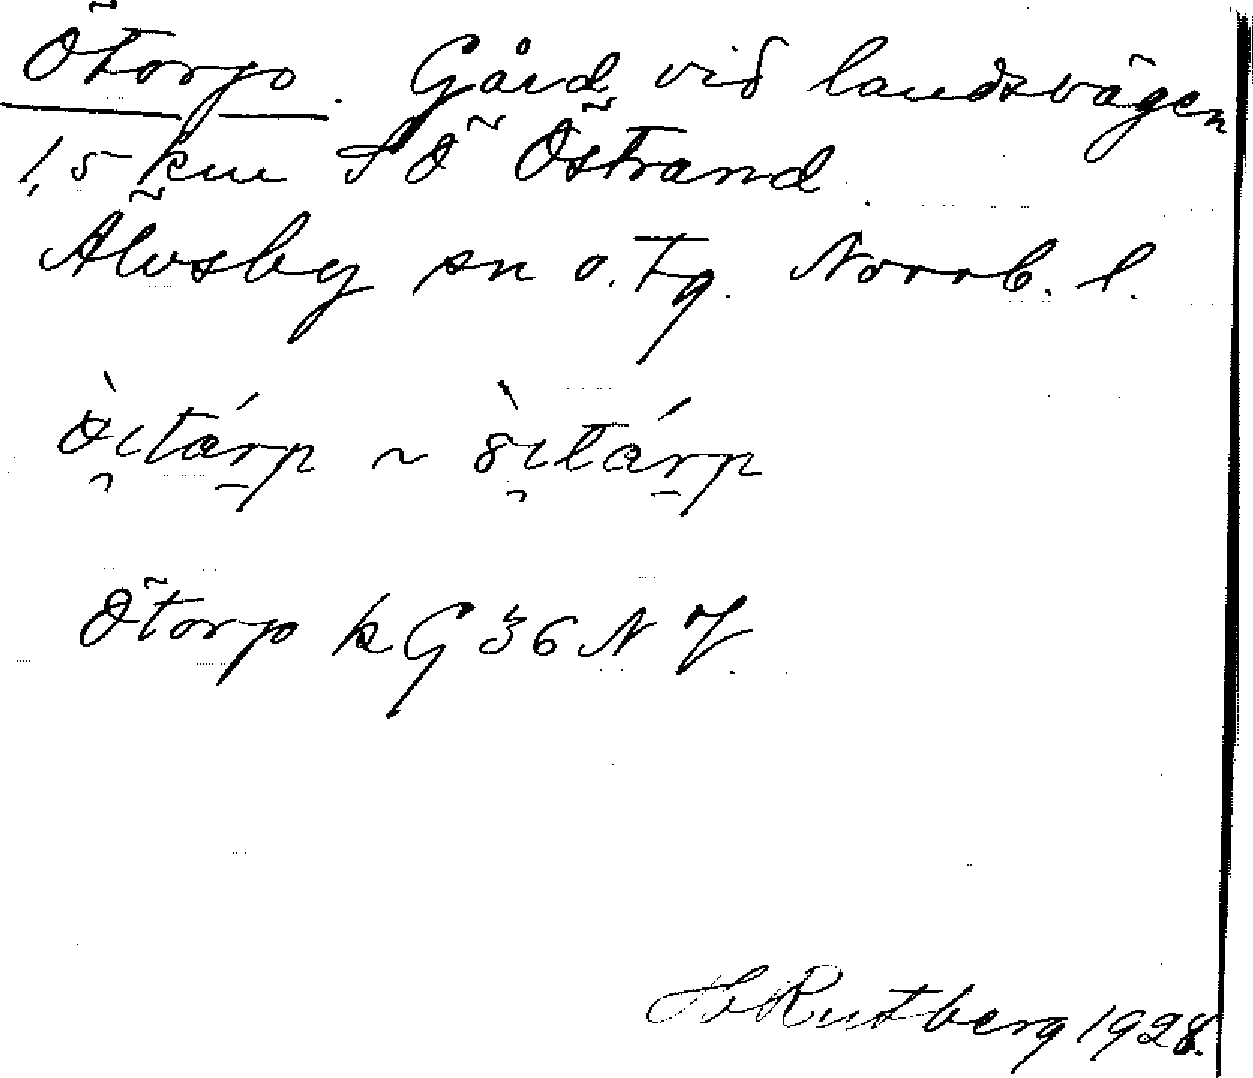 Ötorp. Gård vid landsvägen
1,5 km SÖ Östrand.
Älvsby sn o. tg. Norrb. l.
Ötorp kG 36 NV.
H Rutberg 1928.